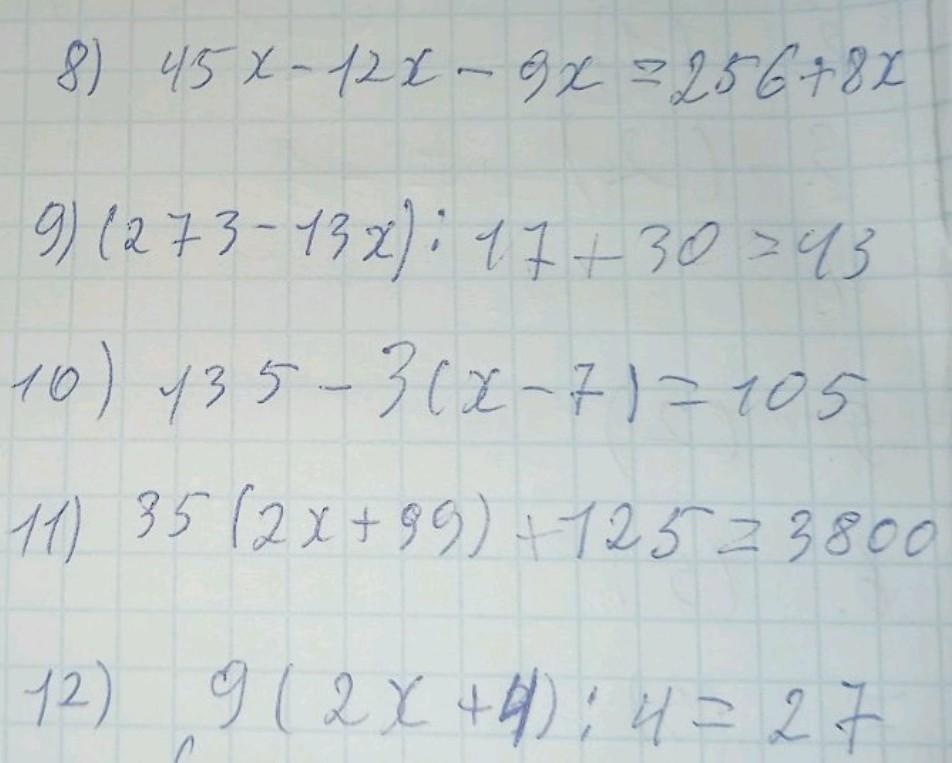 8) 45x - 12x - 9x = 256 + 8x
9) (273 - 13x) : 17 + 30 = 43
10) 135 - 3(x - 7) = 105
11) 35 (2x + 99) + 125 = 3800
12) 9 ( 2x + 4) : 4 = 27